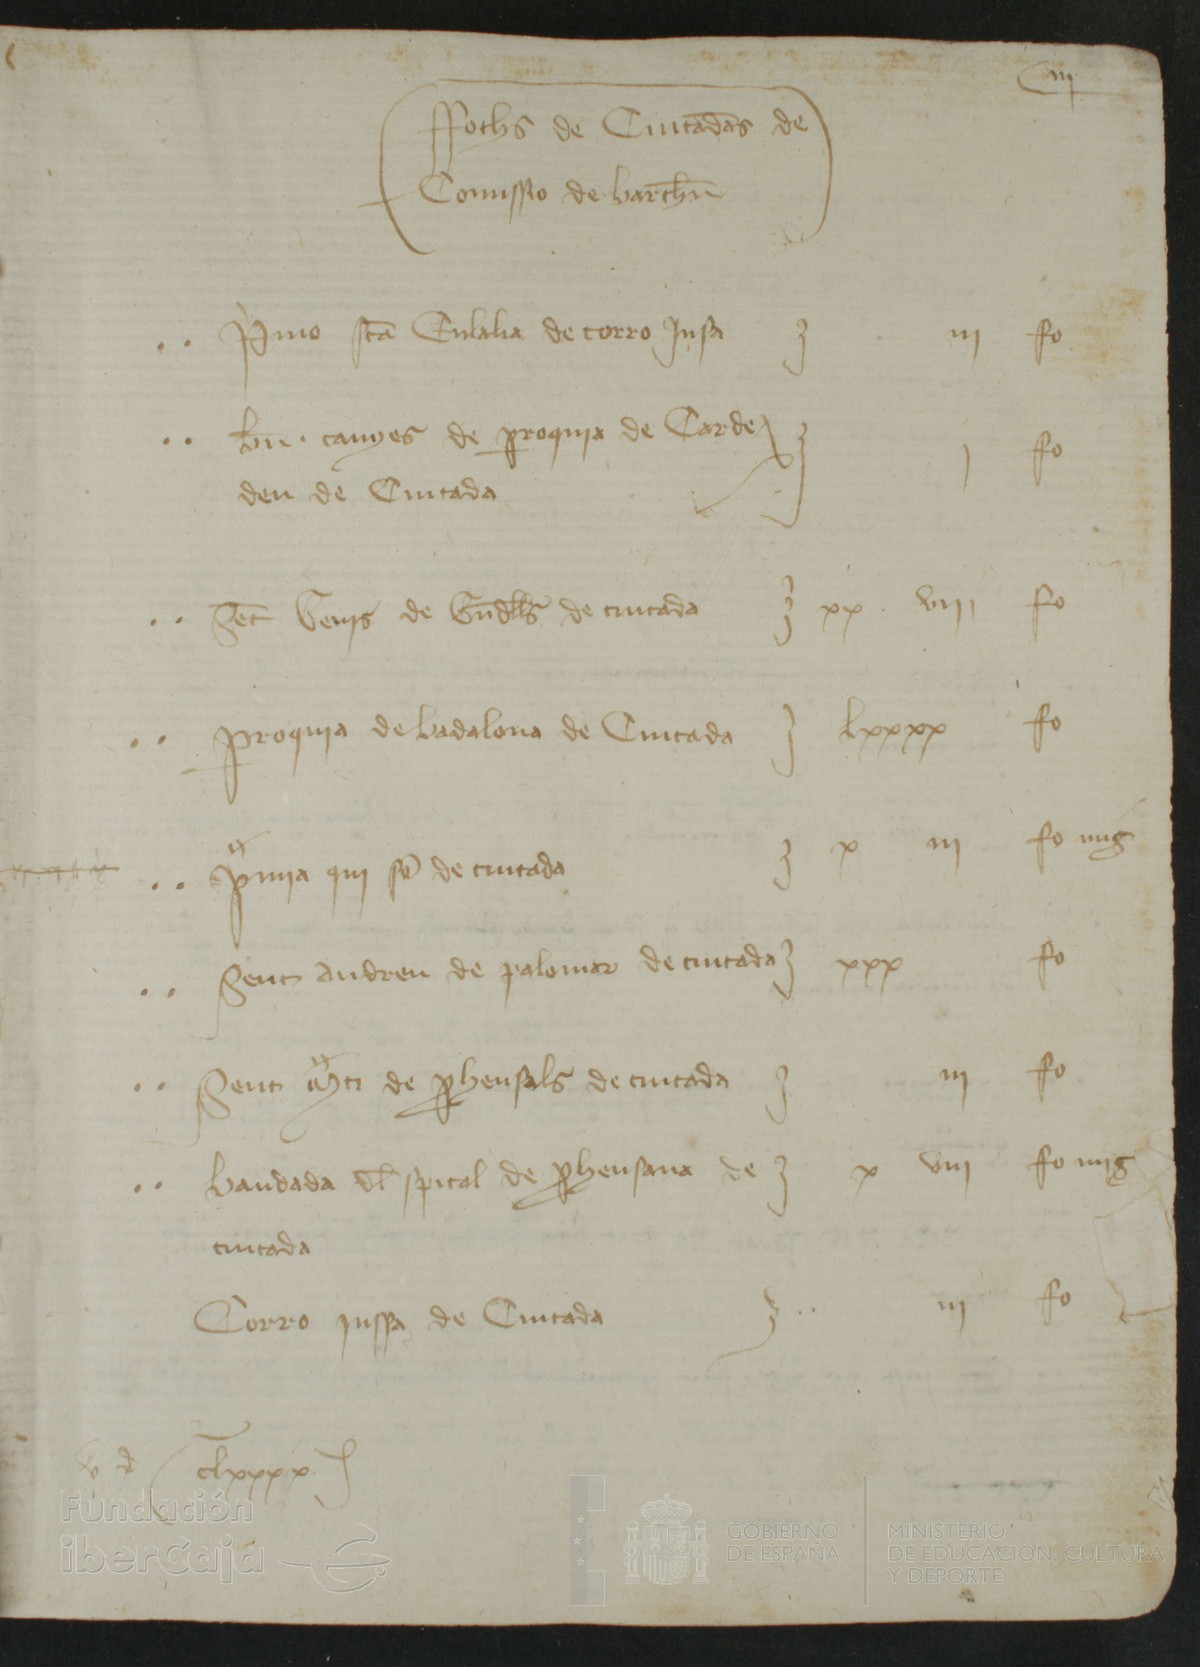 iii
ffochs de Ciutadās de
Comissio de barchñ
Pmo scā Eulalia de corro Jusa iii fo
bñ. canyes de proquia de Carde
deu de Ciutada j fo
Sēt Genis de de ciutada xx viii fo
proquia de badalona de Ciutada lxxxx fo
pmia qui fo de ciutada x iii fo mig
Sent andreu de palomar de ciutada xxx fo
Sent mti de prohensals de ciutada iii fo
bandada dl spital de prohensana de x viii fo mig
ciutada
Corro jussa de Ciutada iii fo
clxxxx j
Fundación
iberCaja
GOBIERNO
DE ESPAÑA
MINISTERIO
DE EDUCACIÓN, CULTURA
Y DEPORTE